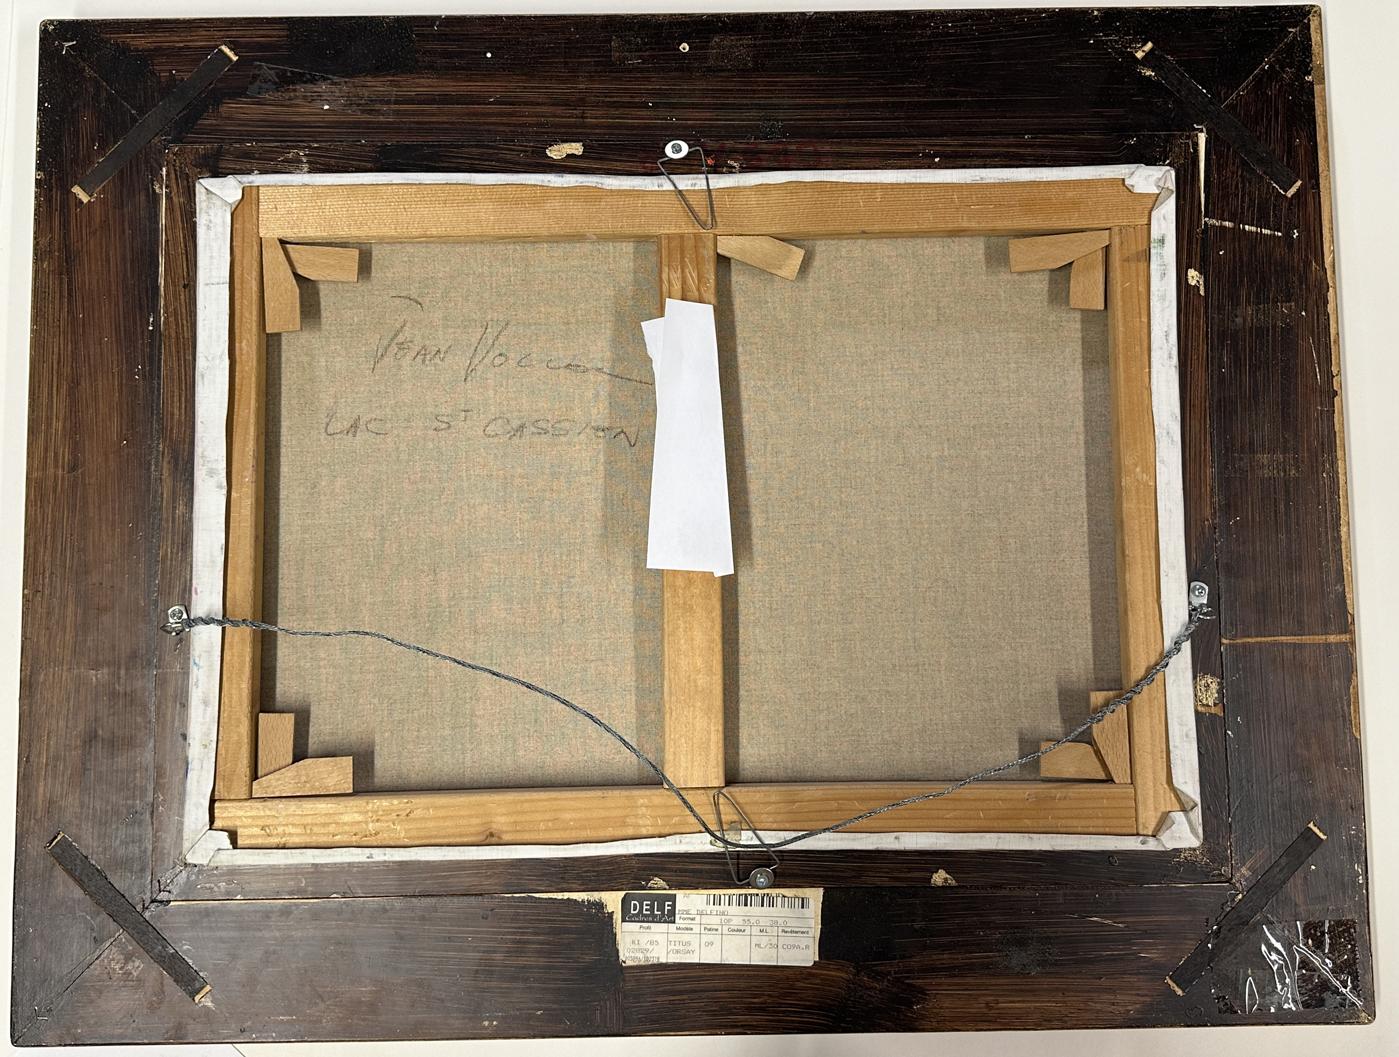 JEAN
LAC ST CASSIEN
DELF
Cadres d'Art
MME DELFINO
Format 10P 55.0 38.0
Profil Modèle Patine Couleur M.L. Revêtement
KI /85 TITUS 09 ML/30 C09A.R
02829/ /ORSAY